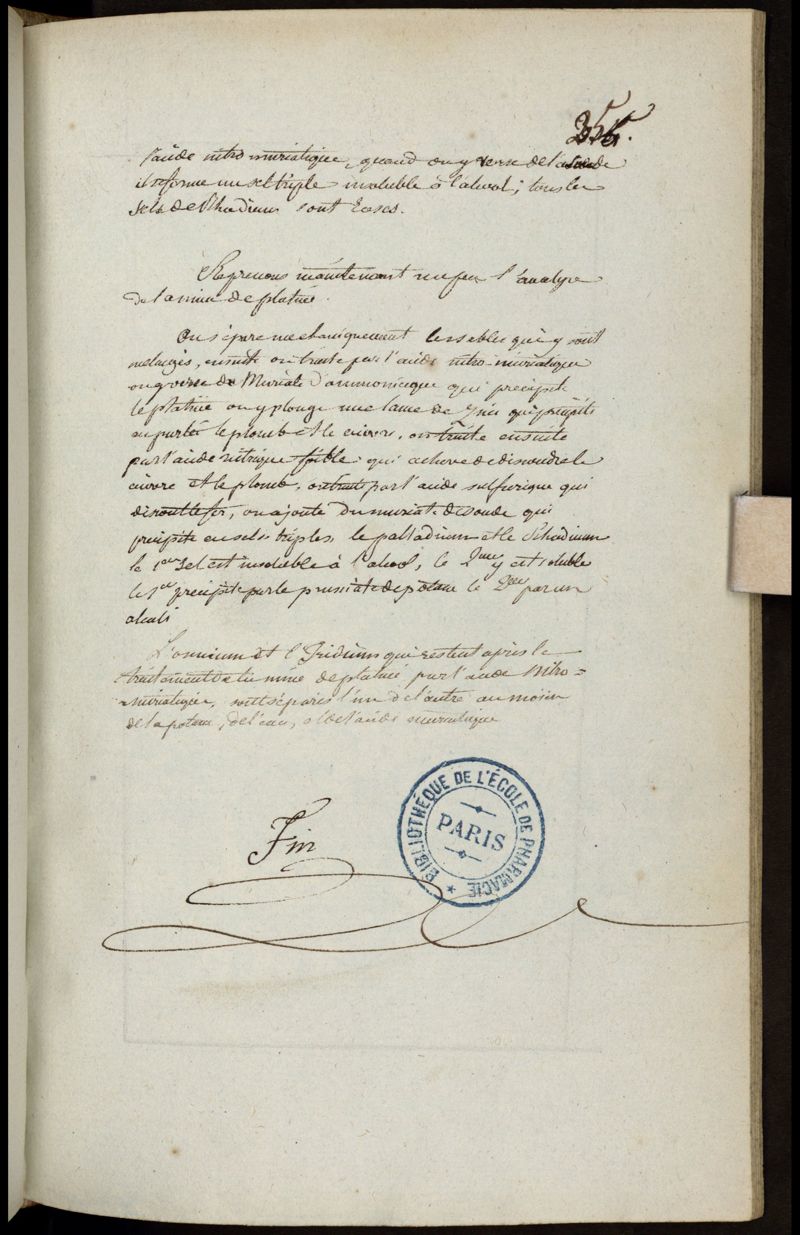 355.
l'acide nitro muriatique, quand on y verse de la soude
il se forme un sel triple insoluble à l'alcool; tous les
sels de Rhodium sont roses.
Reprenons maintenant un peu l'analyse
de la mine de platine.
On sépare mechaniquement les sables qui y sont
melangés, ensuite on traite par l'acide nitro-muriatique
on y verse du Muriate d'ammoniaque qui precipite
le platine on y plonge une lame de Zinc qui precipite
en partie le plomb et le cuivre, on traite ensuite
par l'acide nitrique foible qui acheve de dissoudre le
cuivre et le plomb, on traite par l'acide sulfurique qui
dissout le fer, on ajoute du muriate de soude qui
precipite en sels triples le palladium et le Rhodium
le 1er sel est insoluble à l'alcool, le 2eme y est soluble
le 1er precipite par le prussiate de potasse le 2eme par un
alcali
L'osmium et l'Iridium qui restent après le
traitement de la mine de platine par l'acide Nitro=
muriatique, sont séparés l'un de l'autre au moien
de la potasse, de l'eau, et de l'acide muriatique
Fin
BIBLIOTHÈQUE DE L'ÉCOLE DE PHARMACIE
PARIS